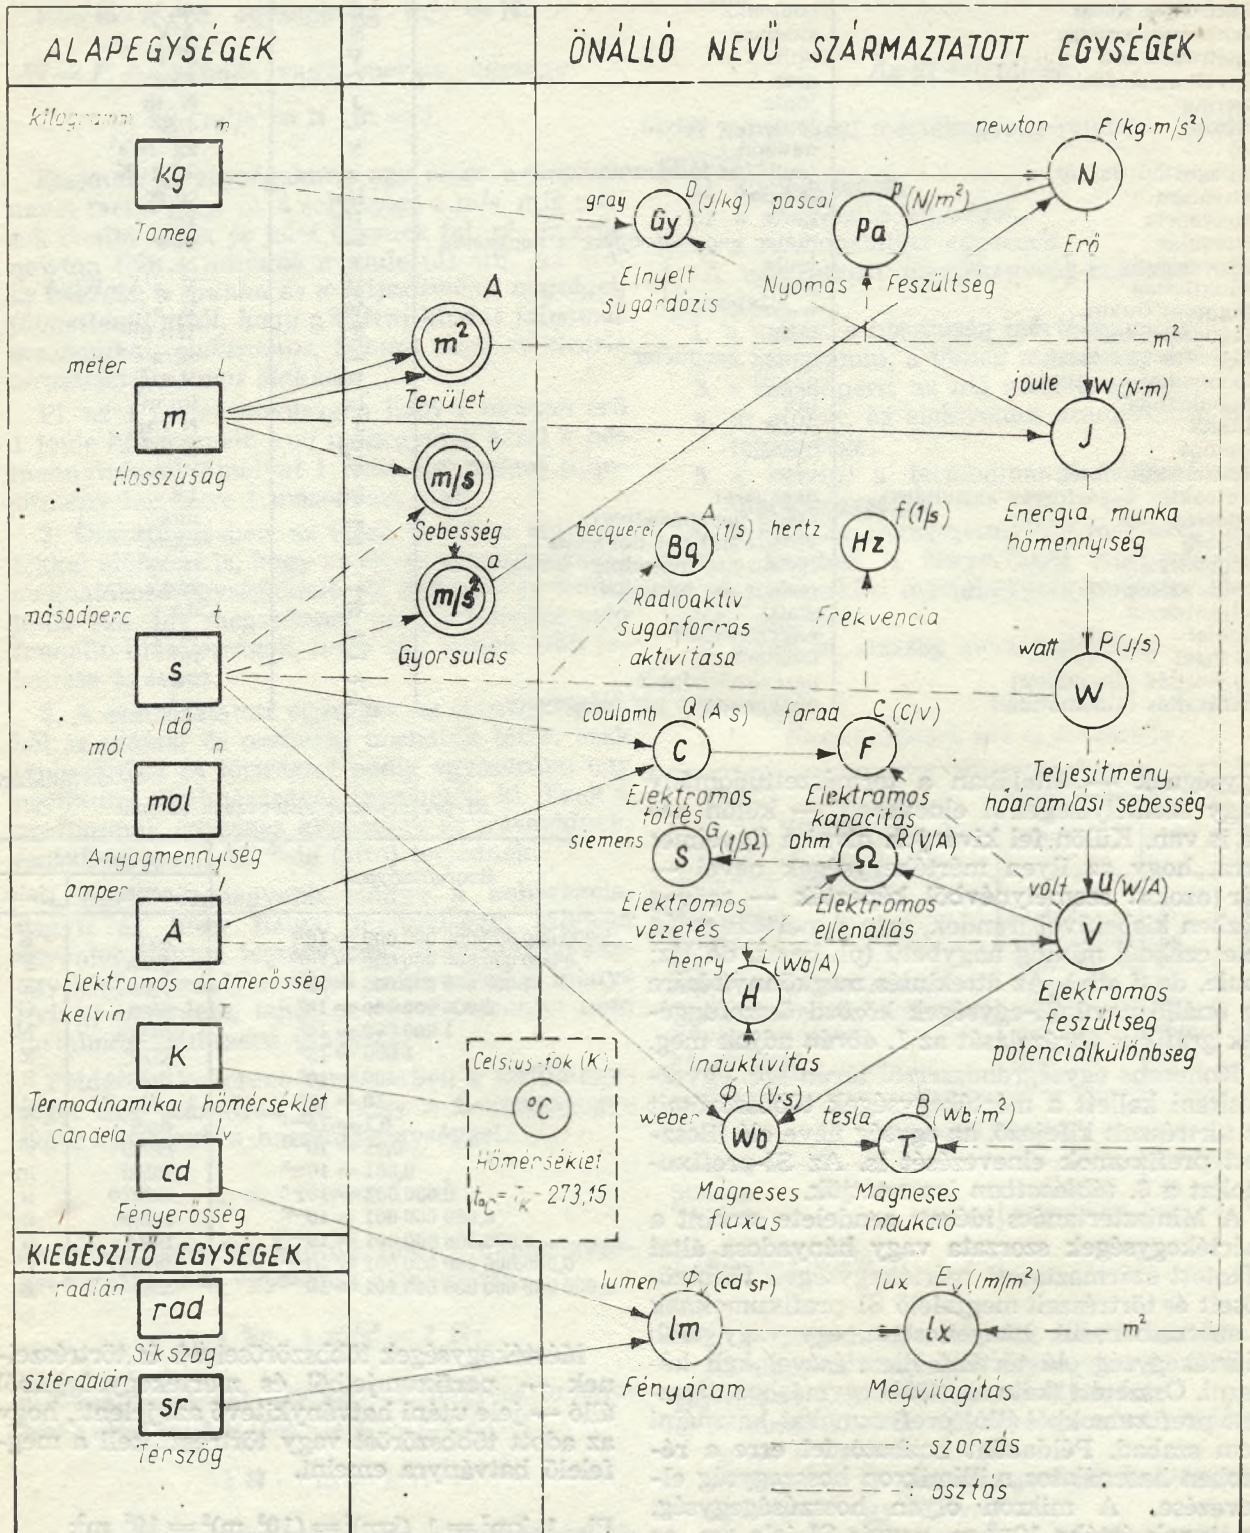 ALAPEGYSÉGEK
ÖNÁLLÓ NEVŰ SZÁRMAZTATOTT EGYSÉGEK
kilogramm m
kg
Tömeg
méter l
m
Hosszúság
másodperc t
s
Idő
mól n
mol
Anyagmennyiség
amper I
A
Elektromos áramerősség
kelvin T
K
Termodinamikai hőmérséklet
Candela Iv
cd
Fényerősség
KIEGÉSZÍTŐ EGYSÉGEK
radián
rad
Síkszög
szteradián
sr
Térszög
A
m²
Terület
v
m/s
Sebesség
a
m/s²
Gyorsulás
Celsius-fok (K)
°C
Hőmérséklet
t°C = TK - 273,15
newton F (kg·m/s²)
N
Erő
gray D (J/kg)
Gy
Elnyelt
sugárdózis
pascal p (N/m²)
Pa
Nyomás Feszültség
m²
joule W (N·m)
J
Energia, munka
hőmennyiség
becquerel A (1/s)
Bq
Radioaktív
sugárforrás
aktivitása
hertz f (1/s)
Hz
Frekvencia
watt P (J/s)
W
Teljesítmény,
hőáramlási sebesség
coulomb Q (A s)
C
Elektromos
töltés
farad C (C/V)
F
Elektromos
kapacitás
siemens G (1/Ω)
S
Elektromos
vezetés
ohm R (V/A)
Ω
Elektromos
ellenállás
volt U (W/A)
V
Elektromos
feszültség
potenciálkülönbség
henry L (Wb/A)
H
induktivitás
weber Φ (V·s)
Wb
Mágneses
fluxus
tesla B (Wb/m²)
T
Mágneses
indukció
lumen Φv (cd sr)
lm
Fényáram
lux Ev (lm/m²)
lx
Megvilágítás
m²
: szorzás
: osztás